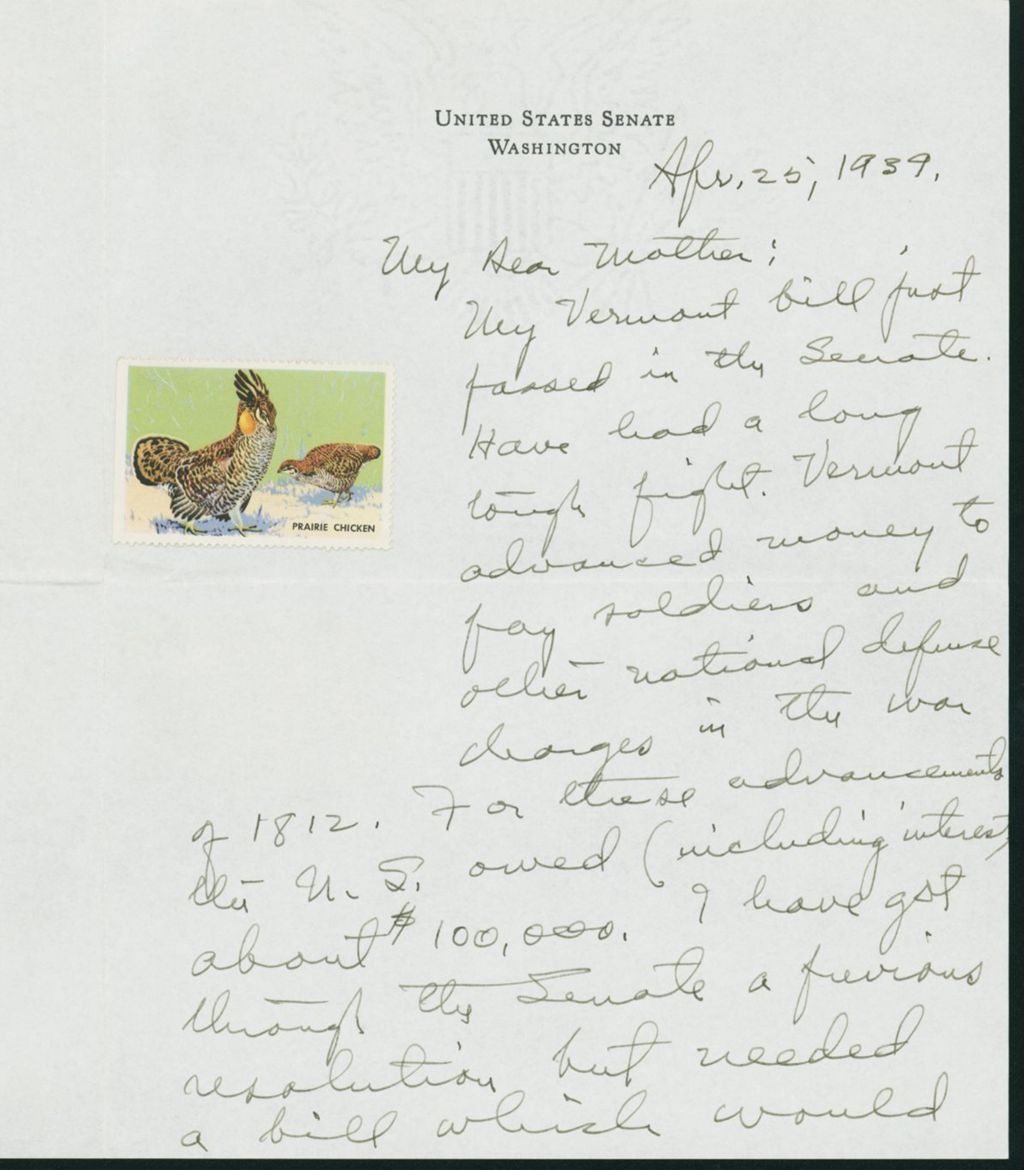 United States Senate
Washington
Apr. 25, 1939.
My Dear Mother:
My Vermont bill just
passed in the Senate.
Have had a long
tough fight. Vermont
advanced money to
pay soldiers and
other national defense
charges in the war
of 1812. For these advancements
the U. S. owed (including interest)
about $100,000. I have got
through the Senate a previous
resolution but needed
a bill which would
PRAIRIE CHICKEN